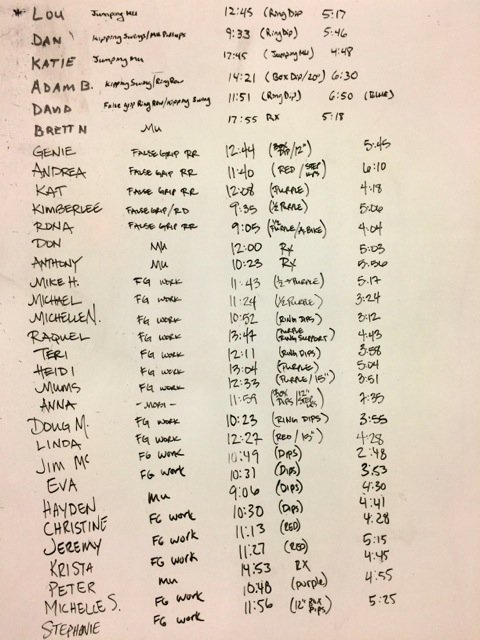 LOU Jumping MU 12:45 (Ring Dip) 5:17
DAN Kipping Swings/MU Pullups 9:33 (Ring Dip) 5:46
KATIE Jumping MU 17:45 (Jumping MU) 4:48
ADAM B. Kipping Swing/Ring Row 14:21 (Box Dip/20") 6:30
DAVID False grip Ring Row/Kipping Swing 11:51 (Ring Dip) 6:50 (BLUE)
BRETT N MU 17:55 RX 5:18
GENIE FALSE GRIP RR 12:44 (BOX DIP/12") 5:45
ANDREA FALSE GRIP RR 11:40 (RED/STEP UPS) 6:10
KAT FALSE GRIP RR 12:08 (PURPLE) 4:18
KIMBERLEE FALSE GRIP/RD 9:35 (½ PURPLE) 5:06
RONA FALSE GRIP RR 9:05 (½ PURPLE/A.BIKE) 4:04
DON MU 12:00 RX 5:03
ANTHONY MU 10:23 RX 5:56
MIKE H. FG WORK 11:43 (½ PURPLE) 5:17
MICHAEL FG WORK 11:24 (½ PURPLE) 3:24
MICHELLE N. FG WORK 10:52 (RING DIPS) 3:12
RAQUEL FG WORK 13:47 (PURPLE RING SUPPORT) 4:43
TERI FG WORK 12:11 (RING DIPS) 3:58
HEIDI FG WORK 13:04 (PURPLE) 5:04
MUMS FG WORK 12:33 (PURPLE/15") 3:51
ANNA - MODI - 11:59 (BOX DIPS/12" STEP UPS) 7:35
DOUG M. FG WORK 10:23 (RING DIPS) 3:55
LINDA FG WORK 12:27 (RED/15") 4:28
JIM MC FG WORK 10:49 (DIPS) 2:48
EVA FG WORK 10:31 (DIPS) 3:53
HAYDEN MU 9:06 (DIPS) 4:30
CHRISTINE FG WORK 10:30 (DIPS) 4:41
JEREMY FG WORK 11:13 (RED) 4:28
KRISTA FG WORK 11:27 (RED) 5:15
PETER MU 14:53 RX 4:45
MICHELLE S. FG WORK 10:48 (PURPLE) 4:55
STEPHANIE FG WORK 11:56 (12" BOX DIPS) 5:25